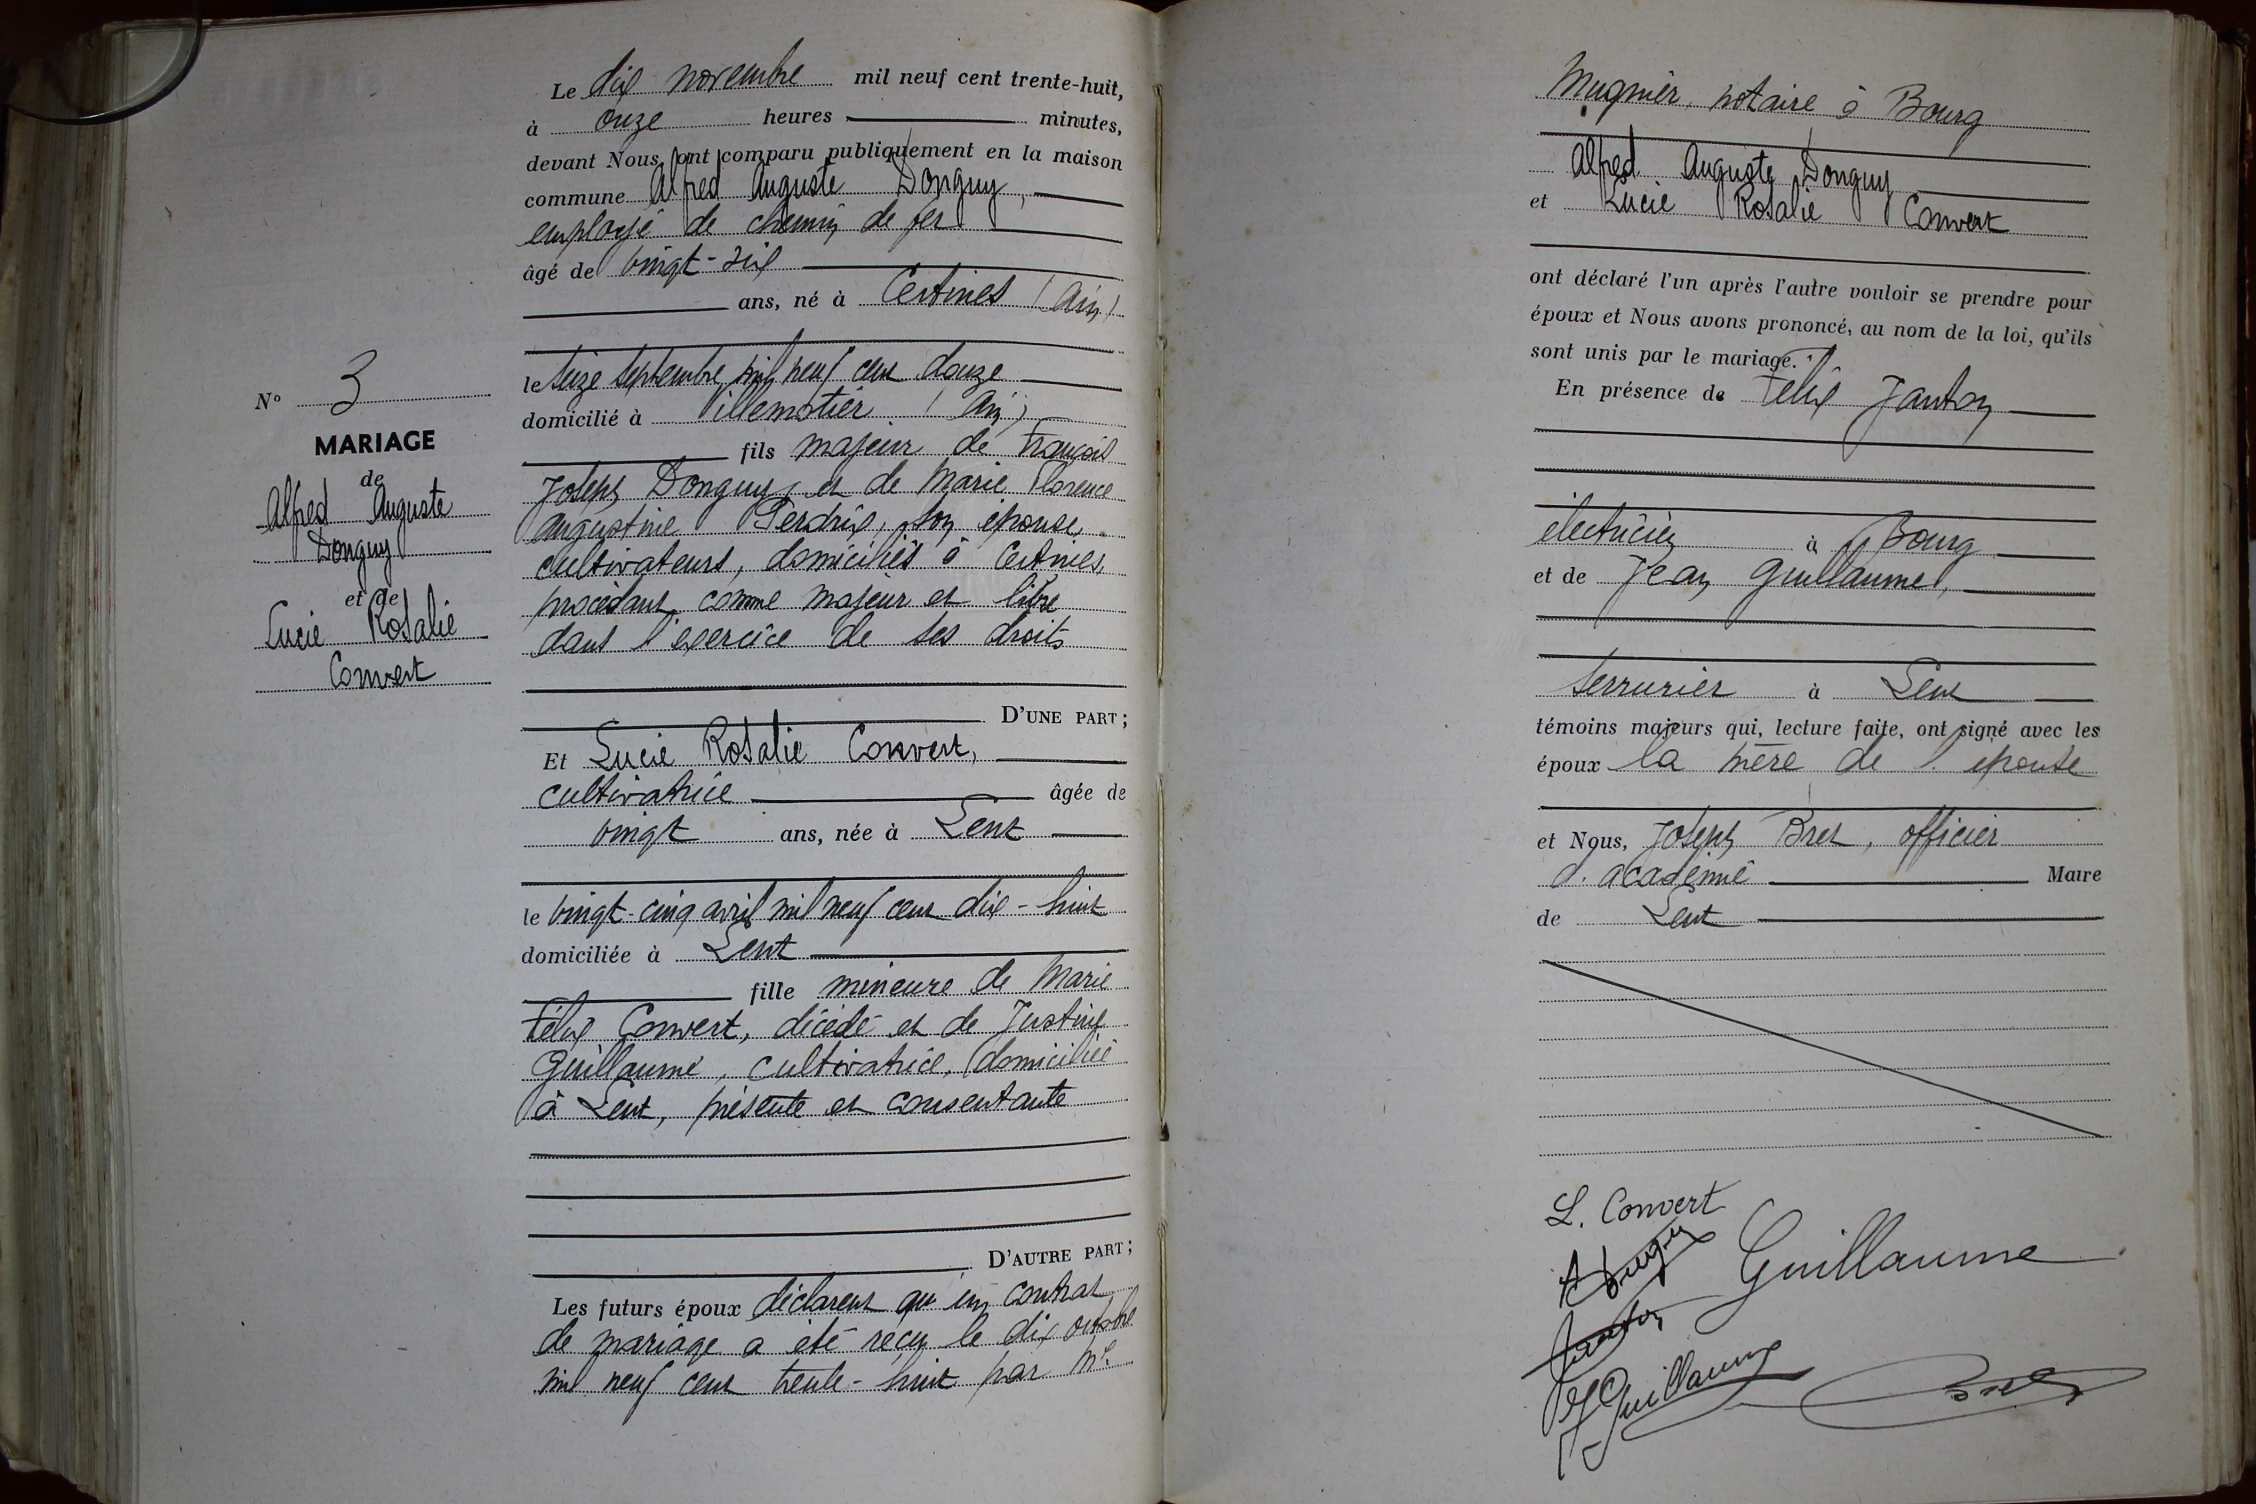 Le dix novembre mil neuf cent trente-huit,
à onze heures minutes,
devant Nous ont comparu publiquement en la maison
commune Alfred Auguste Donguy,
employé de chemin de fer
âgé de vingt-six
ans, né à Certines (Ain)
le seize septembre mil neuf cent douze
domicilié à Villemotier (Ain)
fils majeur de François
Joseph Donguy et de Marie Florence
Augustine Perdrix, son épouse,
cultivateurs, domiciliés à Certines,
procédant comme majeur et libre
dans l'exercice de ses droits
D'UNE PART;
Et Lucie Rosalie Convert,
cultivatrice âgée de
vingt ans, née à Lent
le vingt-cinq avril mil neuf cent dix-huit
domiciliée à Lent
fille mineure de Marie
Félix Convert, décédé et de Justine
Guillaume, cultivatrice, domiciliée
à Lent, présente et consentante
D'AUTRE PART;
Les futurs époux déclarent qu'un contrat
de mariage a été reçu le dix octobre
mil neuf cent trente-huit par Me
No 3
MARIAGE
de
Alfred Auguste
Donguy
et de
Lucie Rosalie
Convert
Mugnier, notaire à Bourg
Alfred Auguste Donguy
et Lucie Rosalie Convert
ont déclaré l'un après l'autre vouloir se prendre pour
époux et Nous avons prononcé, au nom de la loi, qu'ils
sont unis par le mariage.
En présence de Félix Janton
électricien à Bourg
et de Jean Guillaume,
serrurier à Lent
témoins majeurs qui, lecture faite, ont signé avec les
époux la mère de l'épouse
et Nous, Joseph Bret, officier
d'académie Maire
de Lent
L. Convert
A Donguy
Guillaume
Janton
J Guillaume
Bret